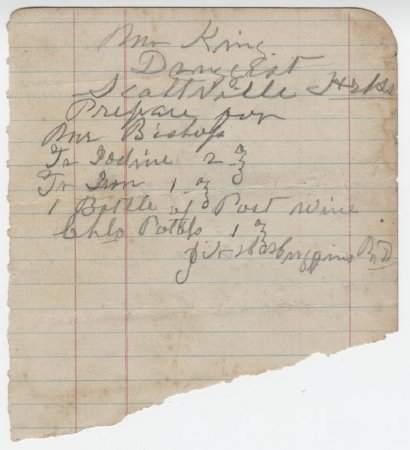 Mr King
Druggist
Scottville
Prepare for
Mr Bishop
Tr Iodine 2 ℥
Tr Iron 1 ℥
1 Bottle of Port wine
Chlo Potass 1 ℥